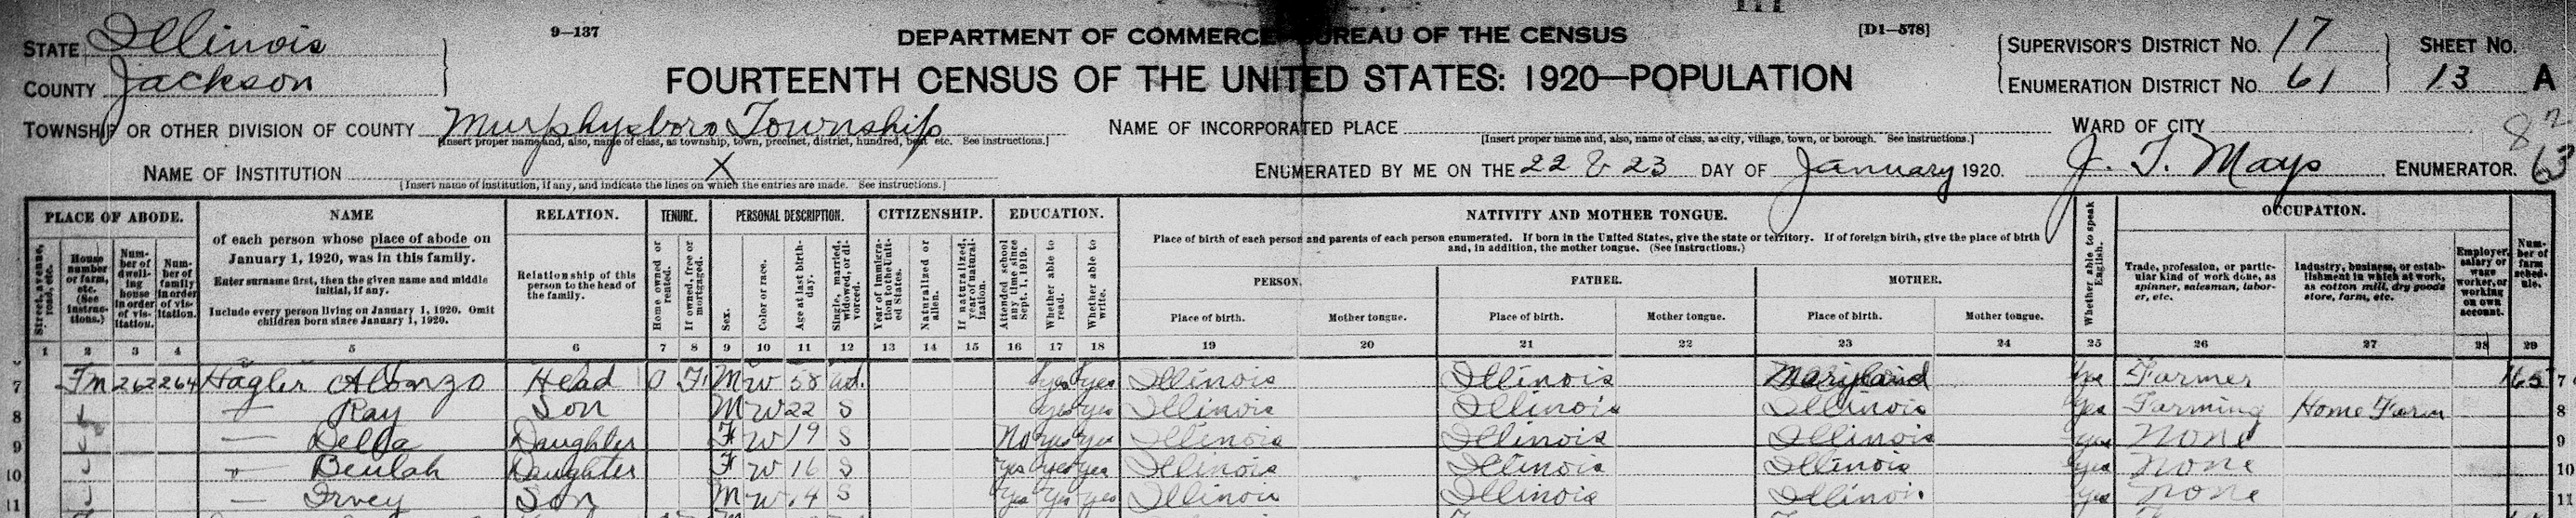 STATE Illinois
COUNTY Jackson
9—137
DEPARTMENT OF COMMERCE—BUREAU OF THE CENSUS
[D1—578]
FOURTEENTH CENSUS OF THE UNITED STATES: 1920—POPULATION
SUPERVISOR'S DISTRICT No. 17
ENUMERATION DISTRICT No. 61
SHEET No. 13 A
TOWNSHIP OR OTHER DIVISION OF COUNTY Murphysboro Township
[Insert proper name and, also, name of class, as township, town, precinct, district, hundred, beat etc. See instructions.]
NAME OF INCORPORATED PLACE
[Insert proper name and, also, name of class, as city, village, town, or borough. See instructions.]
WARD OF CITY
NAME OF INSTITUTION X
[Insert name of institution, if any, and indicate the lines on which the entries are made. See instructions.]
ENUMERATED BY ME ON THE 22 & 23 DAY OF January 1920. J. T. Mays ENUMERATOR. 63
PLACE OF ABODE.
Street, avenue, road, etc.
House number or farm, etc. (See instructions.)
Number of dwelling house in order of visitation.
Number of family in order of visitation.
NAME
of each person whose place of abode on January 1, 1920, was in this family.
Enter surname first, then the given name and middle initial, if any.
Include every person living on January 1, 1920. Omit children born since January 1, 1920.
RELATION.
Relationship of this person to the head of the family.
TENURE.
Home owned or rented.
If owned, free or mortgaged.
PERSONAL DESCRIPTION.
Sex.
Color or race.
Age at last birthday.
Single, married, widowed, or divorced.
CITIZENSHIP.
Year of immigration to the United States.
Naturalized or alien.
If naturalized, year of naturalization.
EDUCATION.
Attended school any time since Sept. 1, 1919.
Whether able to read.
Whether able to write.
NATIVITY AND MOTHER TONGUE.
Place of birth of each person and parents of each person enumerated. If born in the United States, give the state or territory. If of foreign birth, give the place of birth and, in addition, the mother tongue. (See instructions.)
PERSON. FATHER. MOTHER.
Place of birth. Mother tongue. Place of birth. Mother tongue. Place of birth. Mother tongue.
Whether able to speak English.
OCCUPATION.
Trade, profession, or particular kind of work done, as spinner, salesman, laborer, etc.
Industry, business, or establishment in which at work, as cotton mill, dry goods store, farm, etc.
Employer, salary or wage worker, or working on own account.
Number of farm schedule.
1 2 3 4 5 6 7 8 9 10 11 12 13 14 15 16 17 18 19 20 21 22 23 24 25 26 27 28 29
7 Fm 262 264 Hagler Alonzo Head O F M W 58 Wd. yes yes Illinois Illinois Maryland yes Farmer 165 7
8 — Ray Son M W 22 S yes yes Illinois Illinois Illinois Yes Farming Home Farm 8
9 — Della Daughter F W 19 S No yes yes Illinois Illinois Illinois yes None 9
10 Beulah Daughter F W 16 S Yes yes yes Illinois Illinois Illinois yes None 10
11 — Irvey Son M W 14 S Yes Yes yes Illinois Illinois Illinois yes None 11